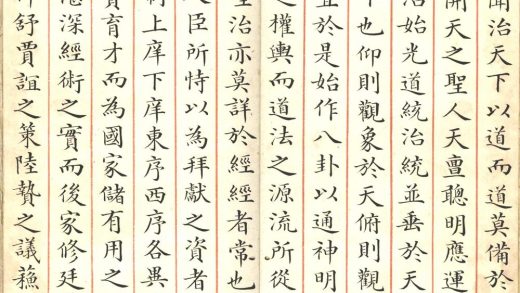 聞治天下以道而道莫備於
開天之聖人天亶聰明應運
治始光道統治統並垂於天
下也仰則觀象於天俯則觀
於是始作八卦以通神明
之權輿而道法之源流所從
聖治亦莫詳於經經者常也
臣所恃以為拜獻之資者
育才而為國家儲有用之
上庠下庠東序西序各異
深經術之實而後家修廷
舒賈誼之策陸贄之議蘓